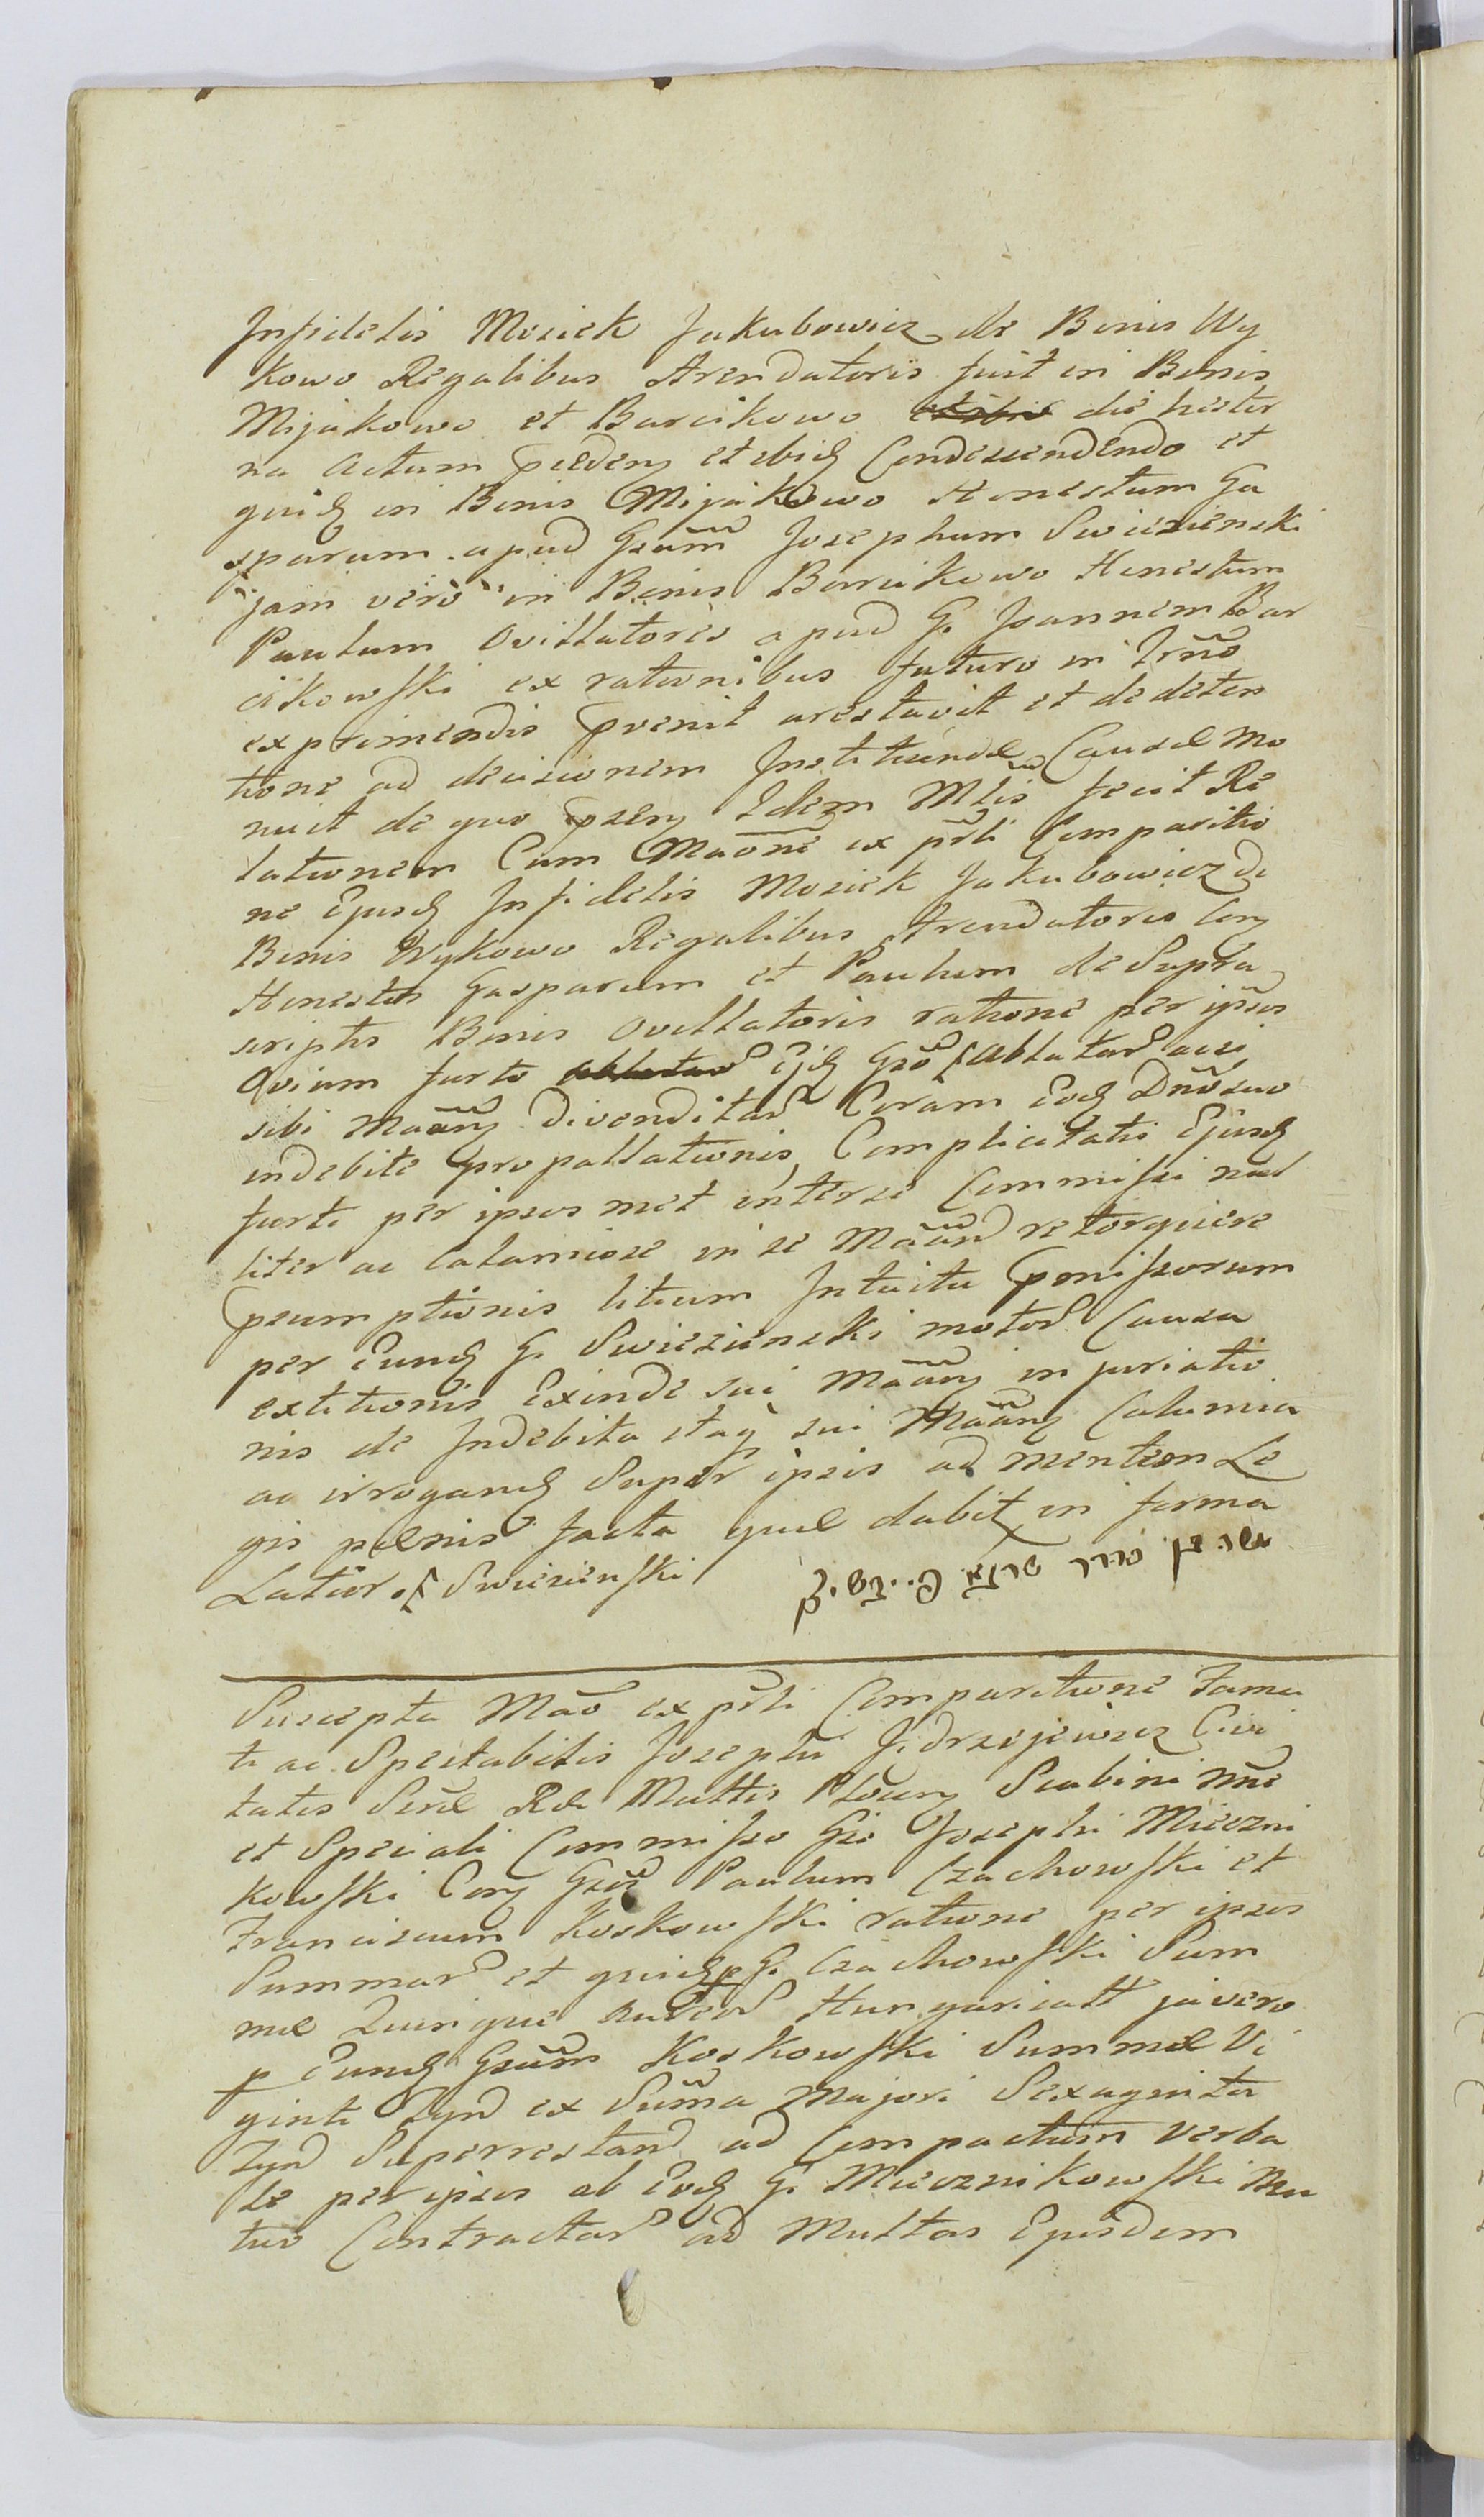 Infidelis Mosiek Jakubowicz de Bonis Wy
kowo Regalibus Arendatoris fuit in Bonis
Mijakowo et Barcikowo die hester
na Actum et ibid Condescendendo et
quid in Bonis Mijakowo Honestum Ga
sparum apud Gsum Josephum Swiezienski
jam vero in Bonis Barcikowo Honestum
Paulum Ovillatores apud G. Joannem Bar
cikowski ex rationibus futuro in Trno
exprimendis pvenit arestavit et de deten
tione ad decisionem Instituendae Causae mo
nuit de quo Idem Mlis fecit Re
lationem Cum Maone ex psli Comparitio
ne Ejusd Infidelis Mosiek Jakubowicz de
Bonis Wykowo Regalibus Arendatoris Con
Honestos Gasparum et Paulum de Supra
scriptis Bonis Ovillatoris ratione per ipsos
Ovium furto Ejd Gso Ablatar acsi
sibi divenditar Coram Eod Dno suo
indebite propallationis Complicitatis Ejusd
furti per ipsos met inter se Commissi nul
liter ac Calamiose in se retorquere
psumptionis litium Intuitu pmissorum
per Eund G. Swiezienski motor Causa
extitionis Exinde sui injuriatio
nis de Indebita itaq sui Calumnia
ac irrogand Super ipsis ad mentem Le
gis paenis facta quae dabit in forma
Lator Swiezienski
Suscepta Mao ex psli Comparitione Fama
ti ac Spectabilis Josephi Jedrzejewicz Civi
tatis Rae Mattis Scabini nne
et Speciali Commisso Gsi Josephi Mieczni
kowski Con Gsos Paulum Czachowski et
Franciscum Koskowski ratione per ipsos
Summar et quid p G. Czachowski Sum
mae Quinque Aureor Hungaricall javero
p Eund Gsum Koskowski Summae Vi
ginti Zyd ex Suma Majori Sexaginta
Zyd Superrestand ad Compactum Verba
le per ipsos ab Eod G. Miecznikowski Mu
tuo Contractar ad Multas Ejusdem